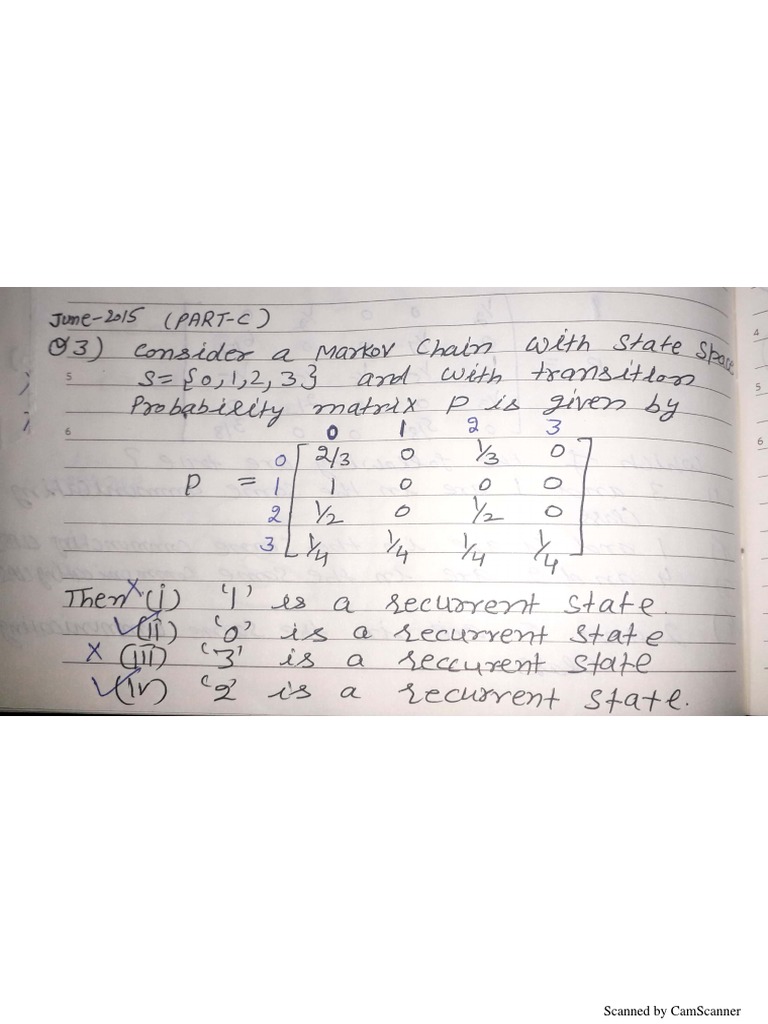 June-2015 (PART-C)
Q3) Consider a Markov Chain With State Space
S={0,1,2,3} and with transition
Probability matrix P is given by
0 1 2 3
0 2/3 0 1/3 0
P = 1 1 0 0 0
2 1/2 0 1/2 0
3 1/4 1/4 1/4 1/4
Then x (i) '1' is a recurrent state.
✓(ii) '0' is a recurrent state
x (iii) '3' is a reccurent state
✓(iv) '2' is a recurrent state.
5
6
4
5
6
Scanned by CamScanner